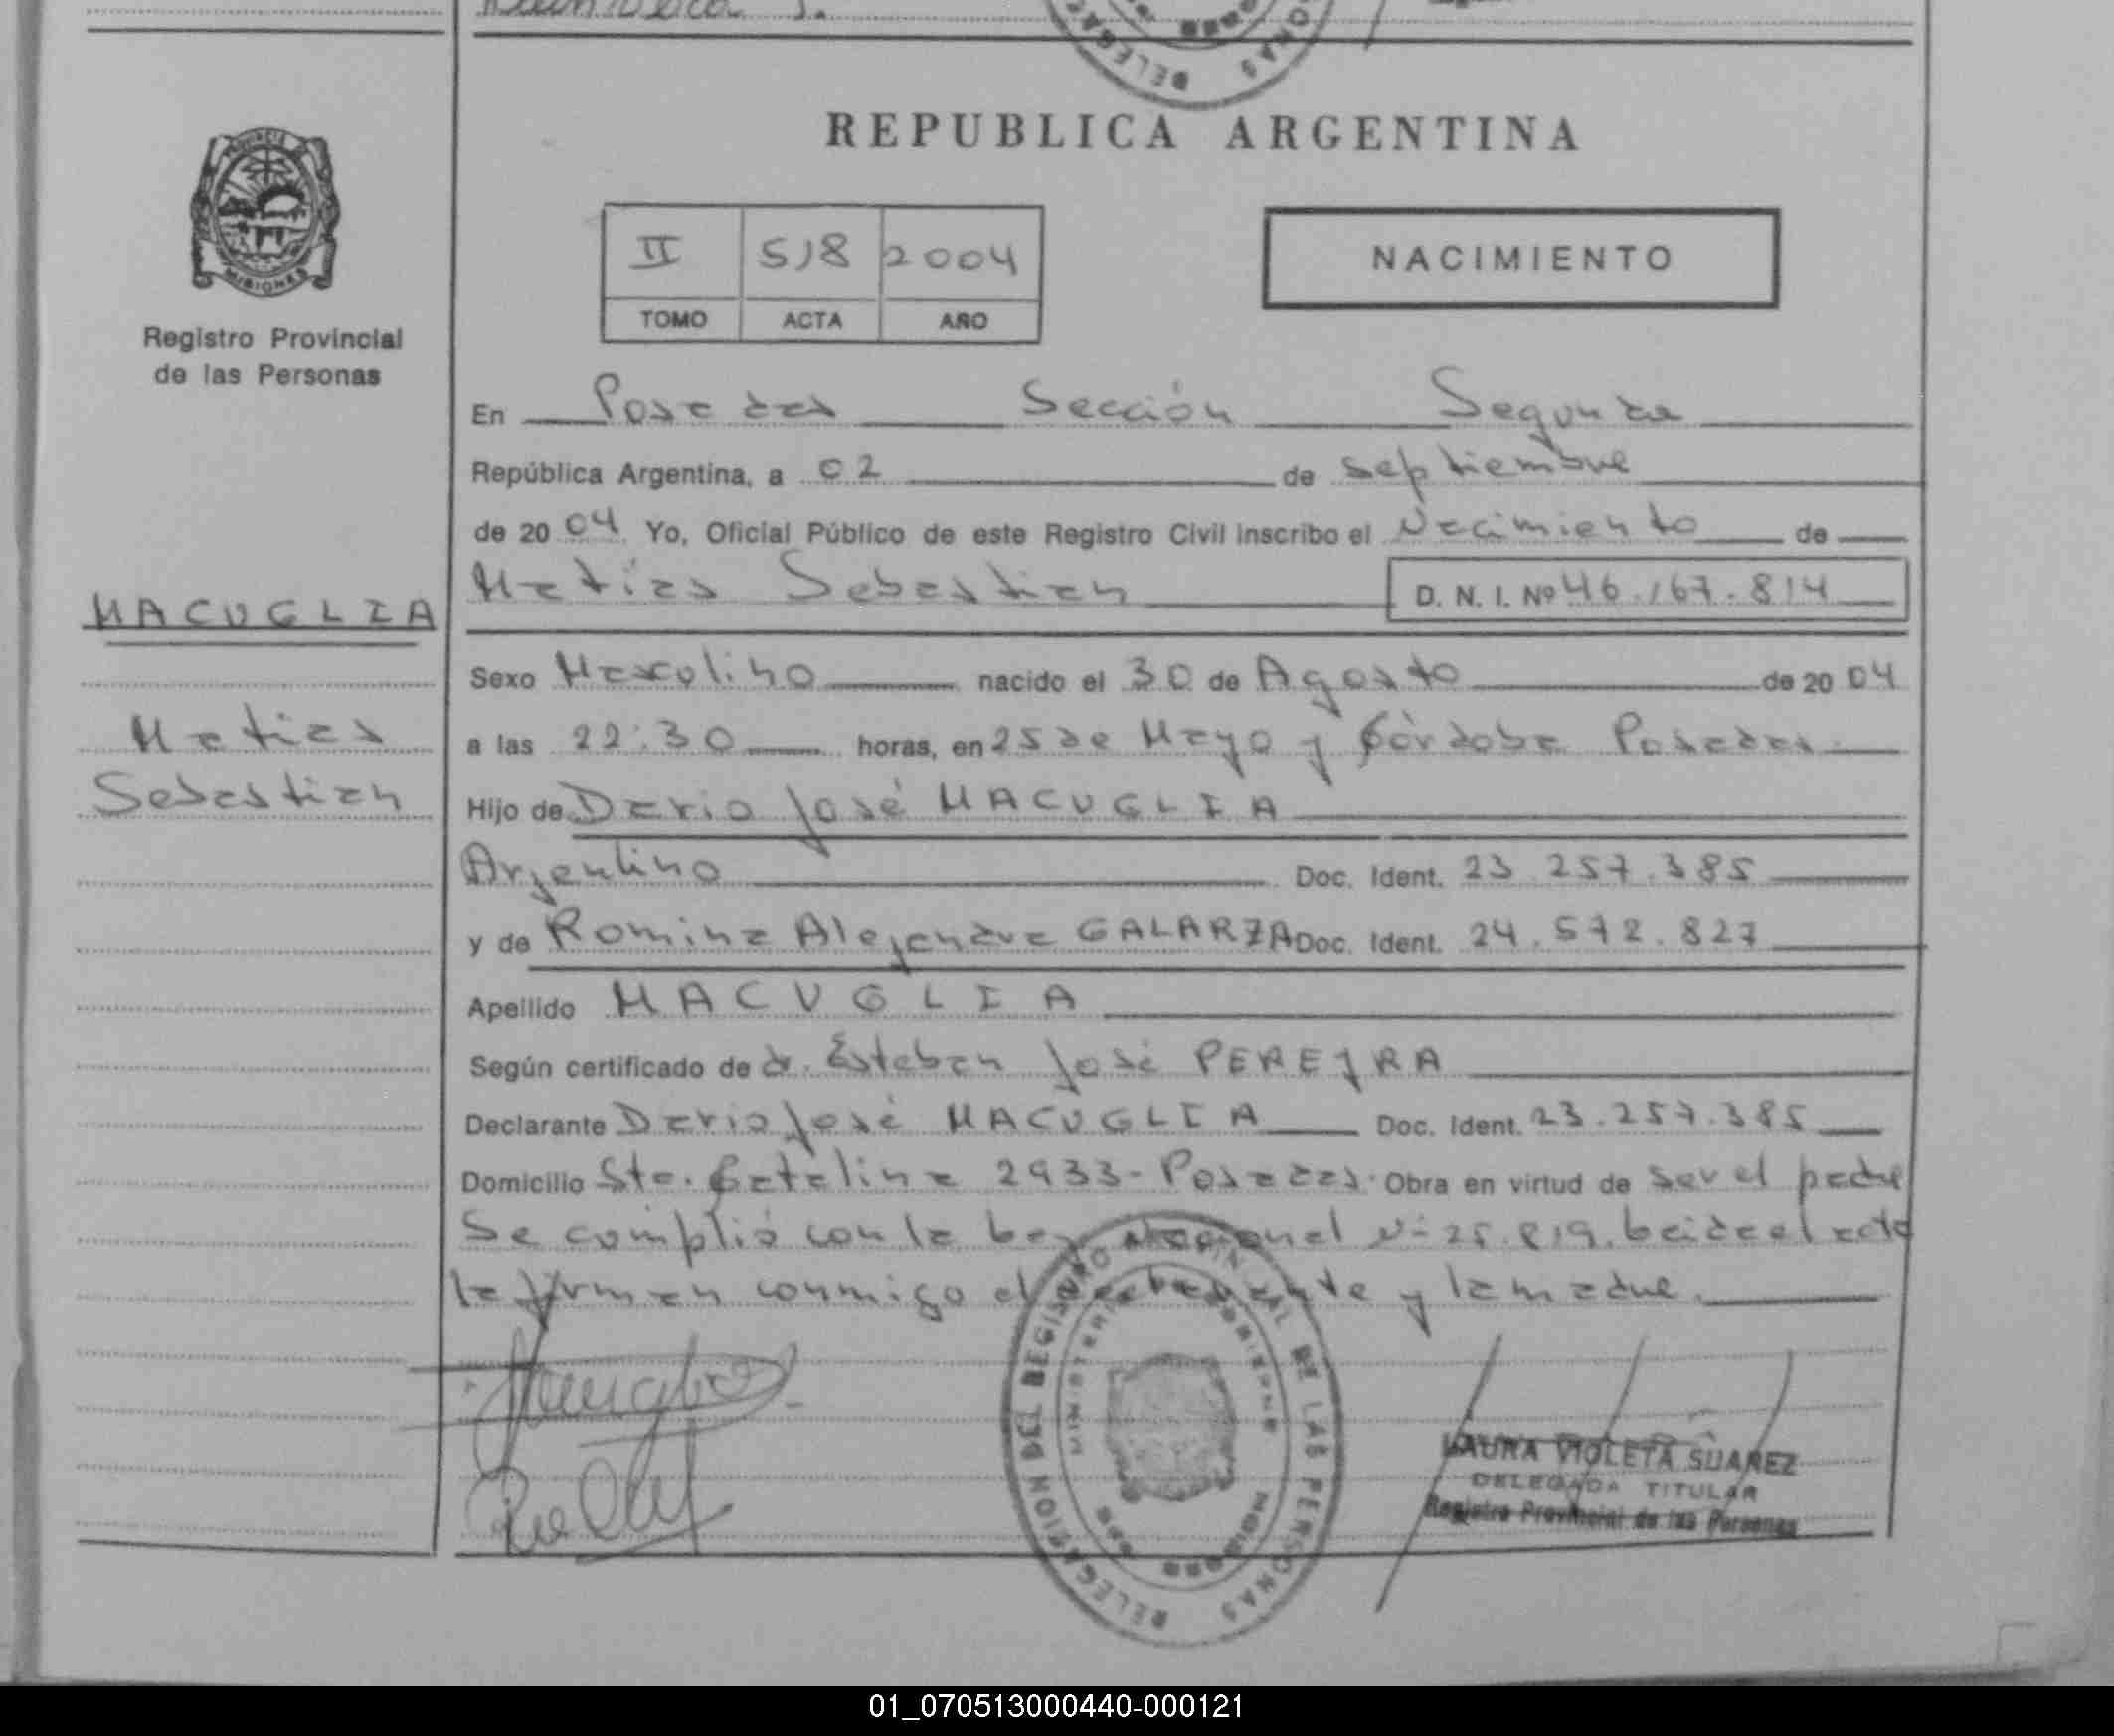 REPUBLICA ARGENTINA
PROVINCIA
MISIONES
Registro Provincial
de las Personas
II 518 2004
TOMO ACTA AÑO
NACIMIENTO
En Posadas Sección Segunda
República Argentina, a 02 de septiembre
de 2004 Yo, Oficial Público de este Registro Civil inscribo el Nacimiento de
Matías Sebastian D. N. I. Nº 46.167.814
MACUGLIA
Matias
Sebastian
Sexo Masculino nacido el 30 de Agosto de 2004
a las 22:30 horas, en 25 de Mayo y Córdoba Posadas.
Hijo de Dario José MACUGLIA
Argentino Doc. Ident. 23.257.385
y de Romina Alejandra GALARZA Doc. Ident. 24.572.827
Apellido MACUGLIA
Según certificado de dr. Esteban José PEREJRA
Declarante Dario José MACUGLIA Doc. Ident. 23.257.385
Domicilio Sta. Catalina 2933- Posadas. Obra en virtud de ser el padre
Se cumplió con la Ley Nacional Nº 25.819. Leida el acta
la firman conmigo el declarante y la madre.
DELEGACION DEL REGISTRO PROVINCIAL DE LAS PERSONAS
MINISTERIO GOBIERNO
MISIONES
LAURA VIOLETA SUAREZ
DELEGADA TITULAR
Registro Provincial de las Personas
01_070513000440-000121